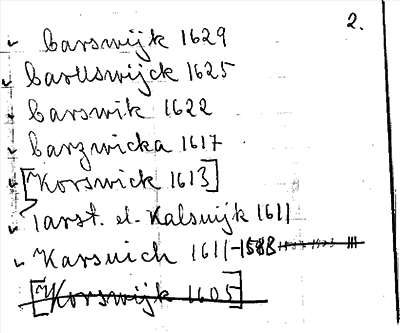 2.
Carswijk 1629
Carllswijck 1625
Carswik 1622
Carzwicka 1617
[Korswick 1613]
1611
Karsuich 1611-1588
[Korswijk 1605]